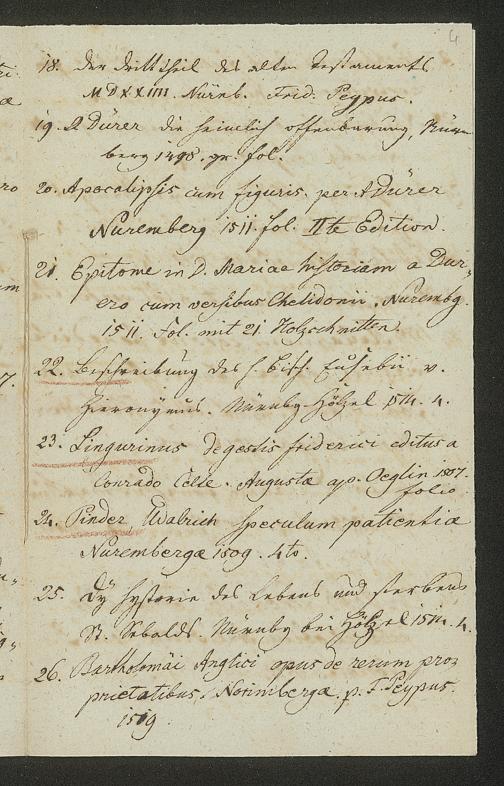 4
18. Der dritt theil des alten Testaments
MDXXIIII. Nürnb. Frid. Peypus.
19. A Dürer die heimlich offenbarung, Nürn-
berg 1498. gr. fol.
20. Apocalipsis cum figuris. per A Dürer
Nuremberg 1511 fol. IIte Edition.
21. Epitome in D. Mariae historiam a Dur-
ero cum versibus Chelidonii. Nurembg.
1511. Fol. mit 21 Holzschnitten.
22. Beschreibung des h. Bisch. Eusebii v.
Hieronymus. Nürnbg Hölzel 1514. 4.
23. Lingurinus de gestis friderici editus a
Conrado Celte. Augustæ ap. Oeglin 1507.
folio.
24. Pinder, Udalrich speculum patientiæ
Nurembergæ 1509. 4to.
25. Dy hystorie des Lebens und sterbens
St. Sebalds. Nürnbg bei Hölzel 1514. 4.
26. Bartholomäi Anglici opus de rerum pro=
prietatibus. Norimbergæ. p. F. Peypus.
1519.